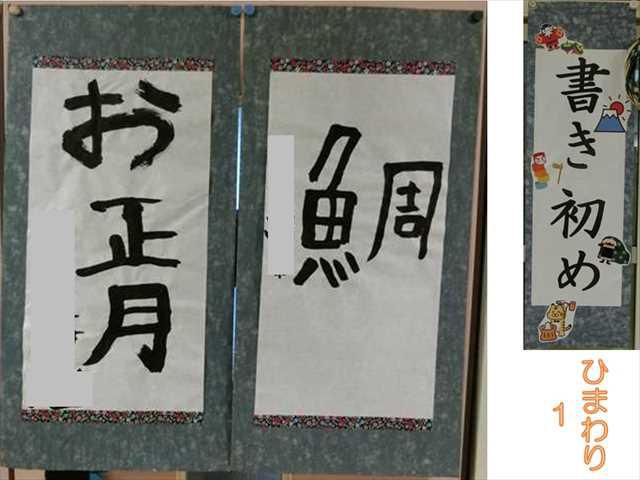 お正月
鯛
書き初め
ひまわり
1